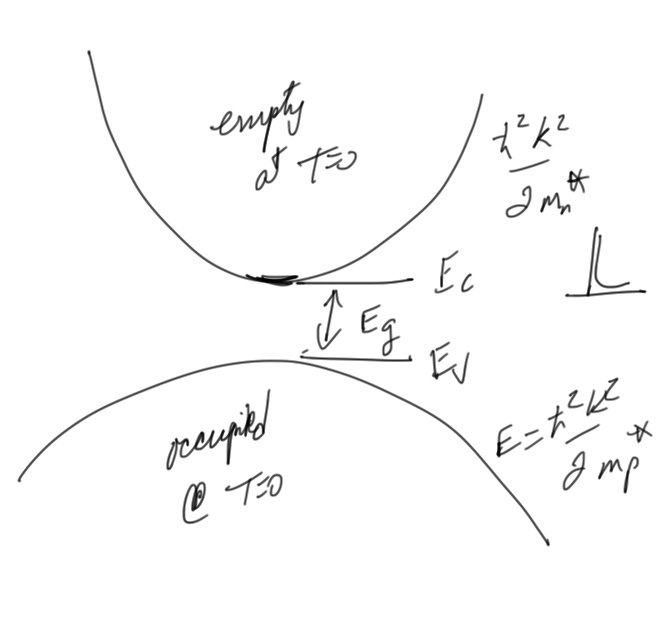 empty
at T=0
ħ²k²
2 mn*
Ec
Eg
Ev
occupied
@ T=0
E = ħ²k²
2 mp*